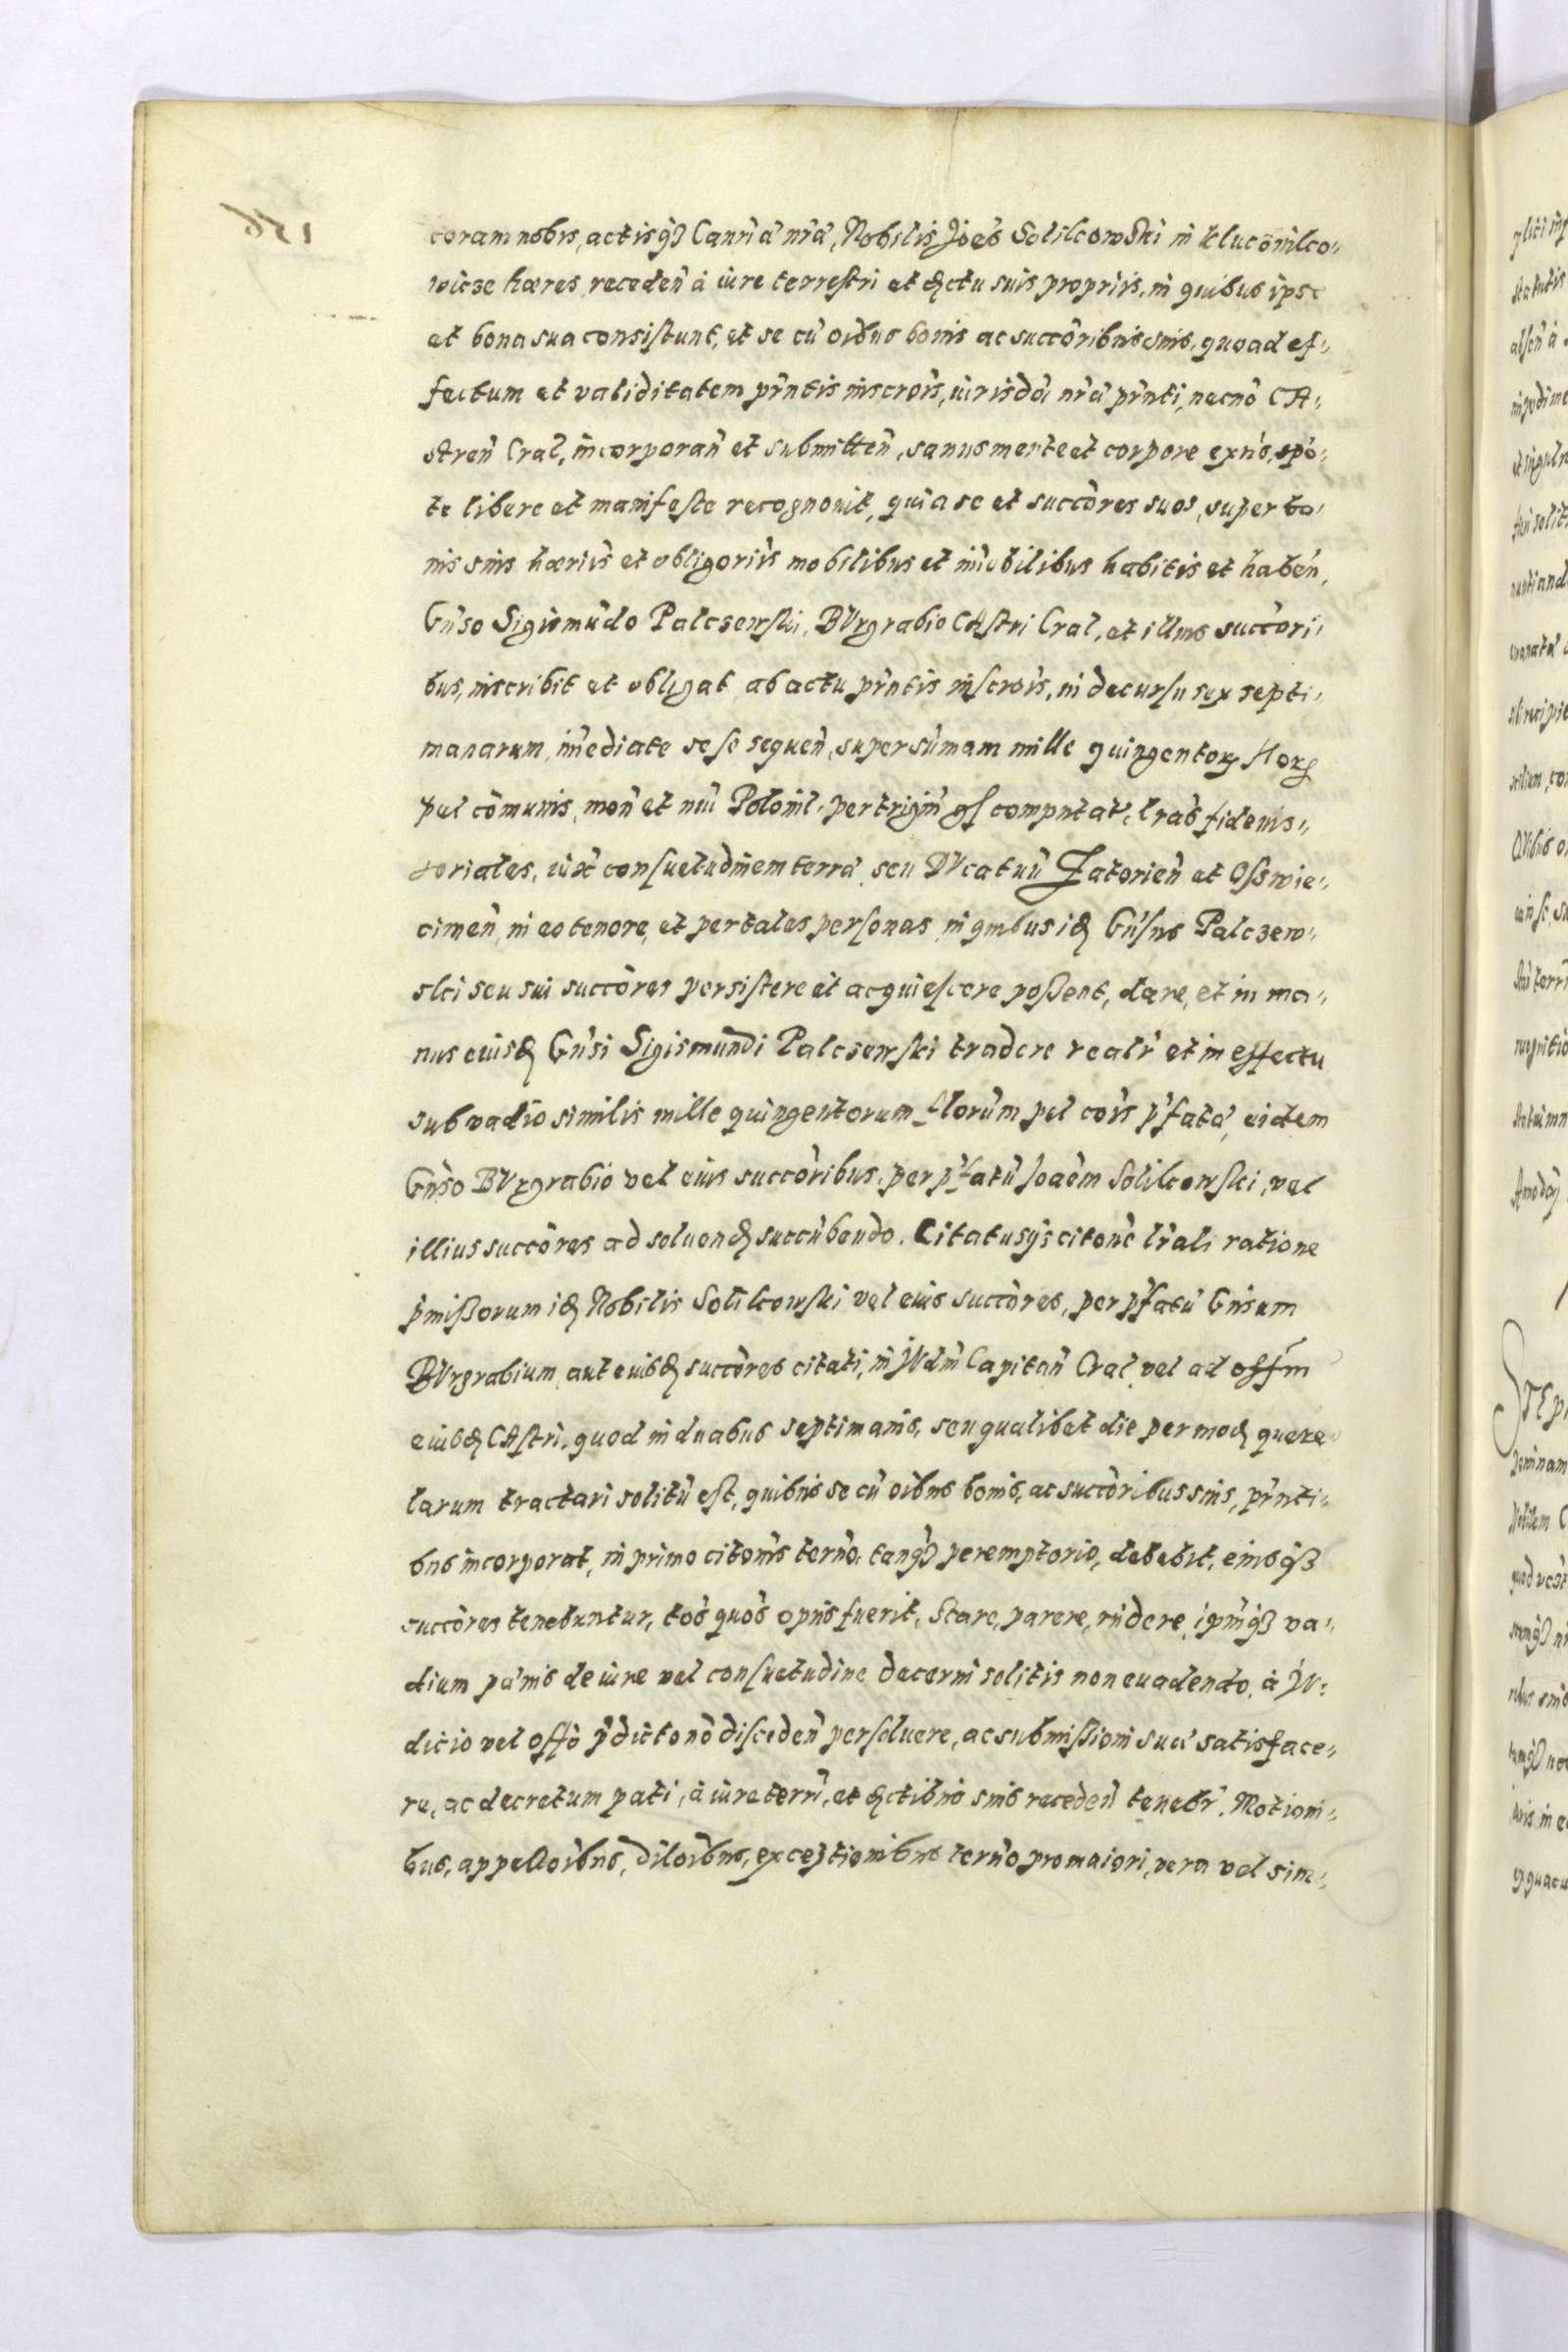 coram nobis, actisq₃ Canri̇a nr̄a, Nobilis Joēs Solilcowski in Klucōnilco,,
wicze hæres receden̄ à iure terrestri et districtu suis propriis, in quibus ipse
et bona sua consistunt, et se cū oibus bonis ac succōribus suis, quoad ef,,
fectum et validitatem pr̄ntis inscrōis, iurisdōi nr̄a pr̄nti, necnō CA,,
stren̄ Cral, incorporan̄ et submitten̄, sanus mente et corpore exn̄s, spō,,
te libere et manifeste recognouit, quia se et succōres suos, super bo,,
nis suis hæriis et obligoriis mobilibus et im̄obilibus habitis et haben̄,
Gn̄so Sigismūdo Palczewski, BVrgrabio CAstri Cral, et illius succōri,,
bus, inscribit et obligat ab actu pr̄ntis inscrōis, in decursu sex septi,,
manarum, im̄ediate sese sequen̄, super sūmam mille quingentorꝝ florꝝ
pel cōmunis, mon̄ et nūi Polonil. per trigin̄ gs computat, lr̄as fideius,,
soriales, iux̄ consuetudinem terra seu DVcatuū Zatorien̄ et Osswie,,
cimen̄, in eo tenore, et per tales personas in quibus idē Gn̄sus Palczew,,
slci seu sui succōres persistere et acquiescere possent, dare, et in ma,,
nus eiusdē Gn̄si Sigismundi Palczewski tradere realr̄ et in effectu
sub vadio similis mille quingentorum florūm pel cōis p̄fata, eidem
Gn̄so BVrgrabio vel eius succōribus, per p̄fatū Joaēm Solilcowslci, vel
illius succōres ad soluendē succūbendo. Citatusq₃ citōne lr̄ali ratione
p̄missorum idē Nobilis Solilcowski vel eius succōres, per p̄fatū Gn̄sum
BVrgrabium aut eiusdē succōres citati, in JVdm̄ Capitan̄ Cral vel ad offm̄
eiusdē CAstri, quod in duabus septimanis, seu qualibet die per modē quere
larum tractari solitū est, quibus se cū oibus bonis, ac succōribus suis, pr̄nti,,
bus incorporat, in primo citōnis tern̄o, tanq₃ peremptorio, debebit, eiusq₃
succōres tenebuntur, tōs quōs opus fuerit, Stare, parere, rn̄dere, ipm̄q₃ va,,
dium pænis de iure vel consuetudine decerni solitis non euadendo, à JV,,
dicio vel offō p̄dicto nō disceden̄ persoluere, ac submissioni suæ satisface,,
re, ac decretum pati, à iure terr̄i, et districtibus suis receden̄ tenebr̄. Motioni,,
bus, appellōibus, dilōibus, exceptionibus tern̄o pro maiori, vera vel sim,,